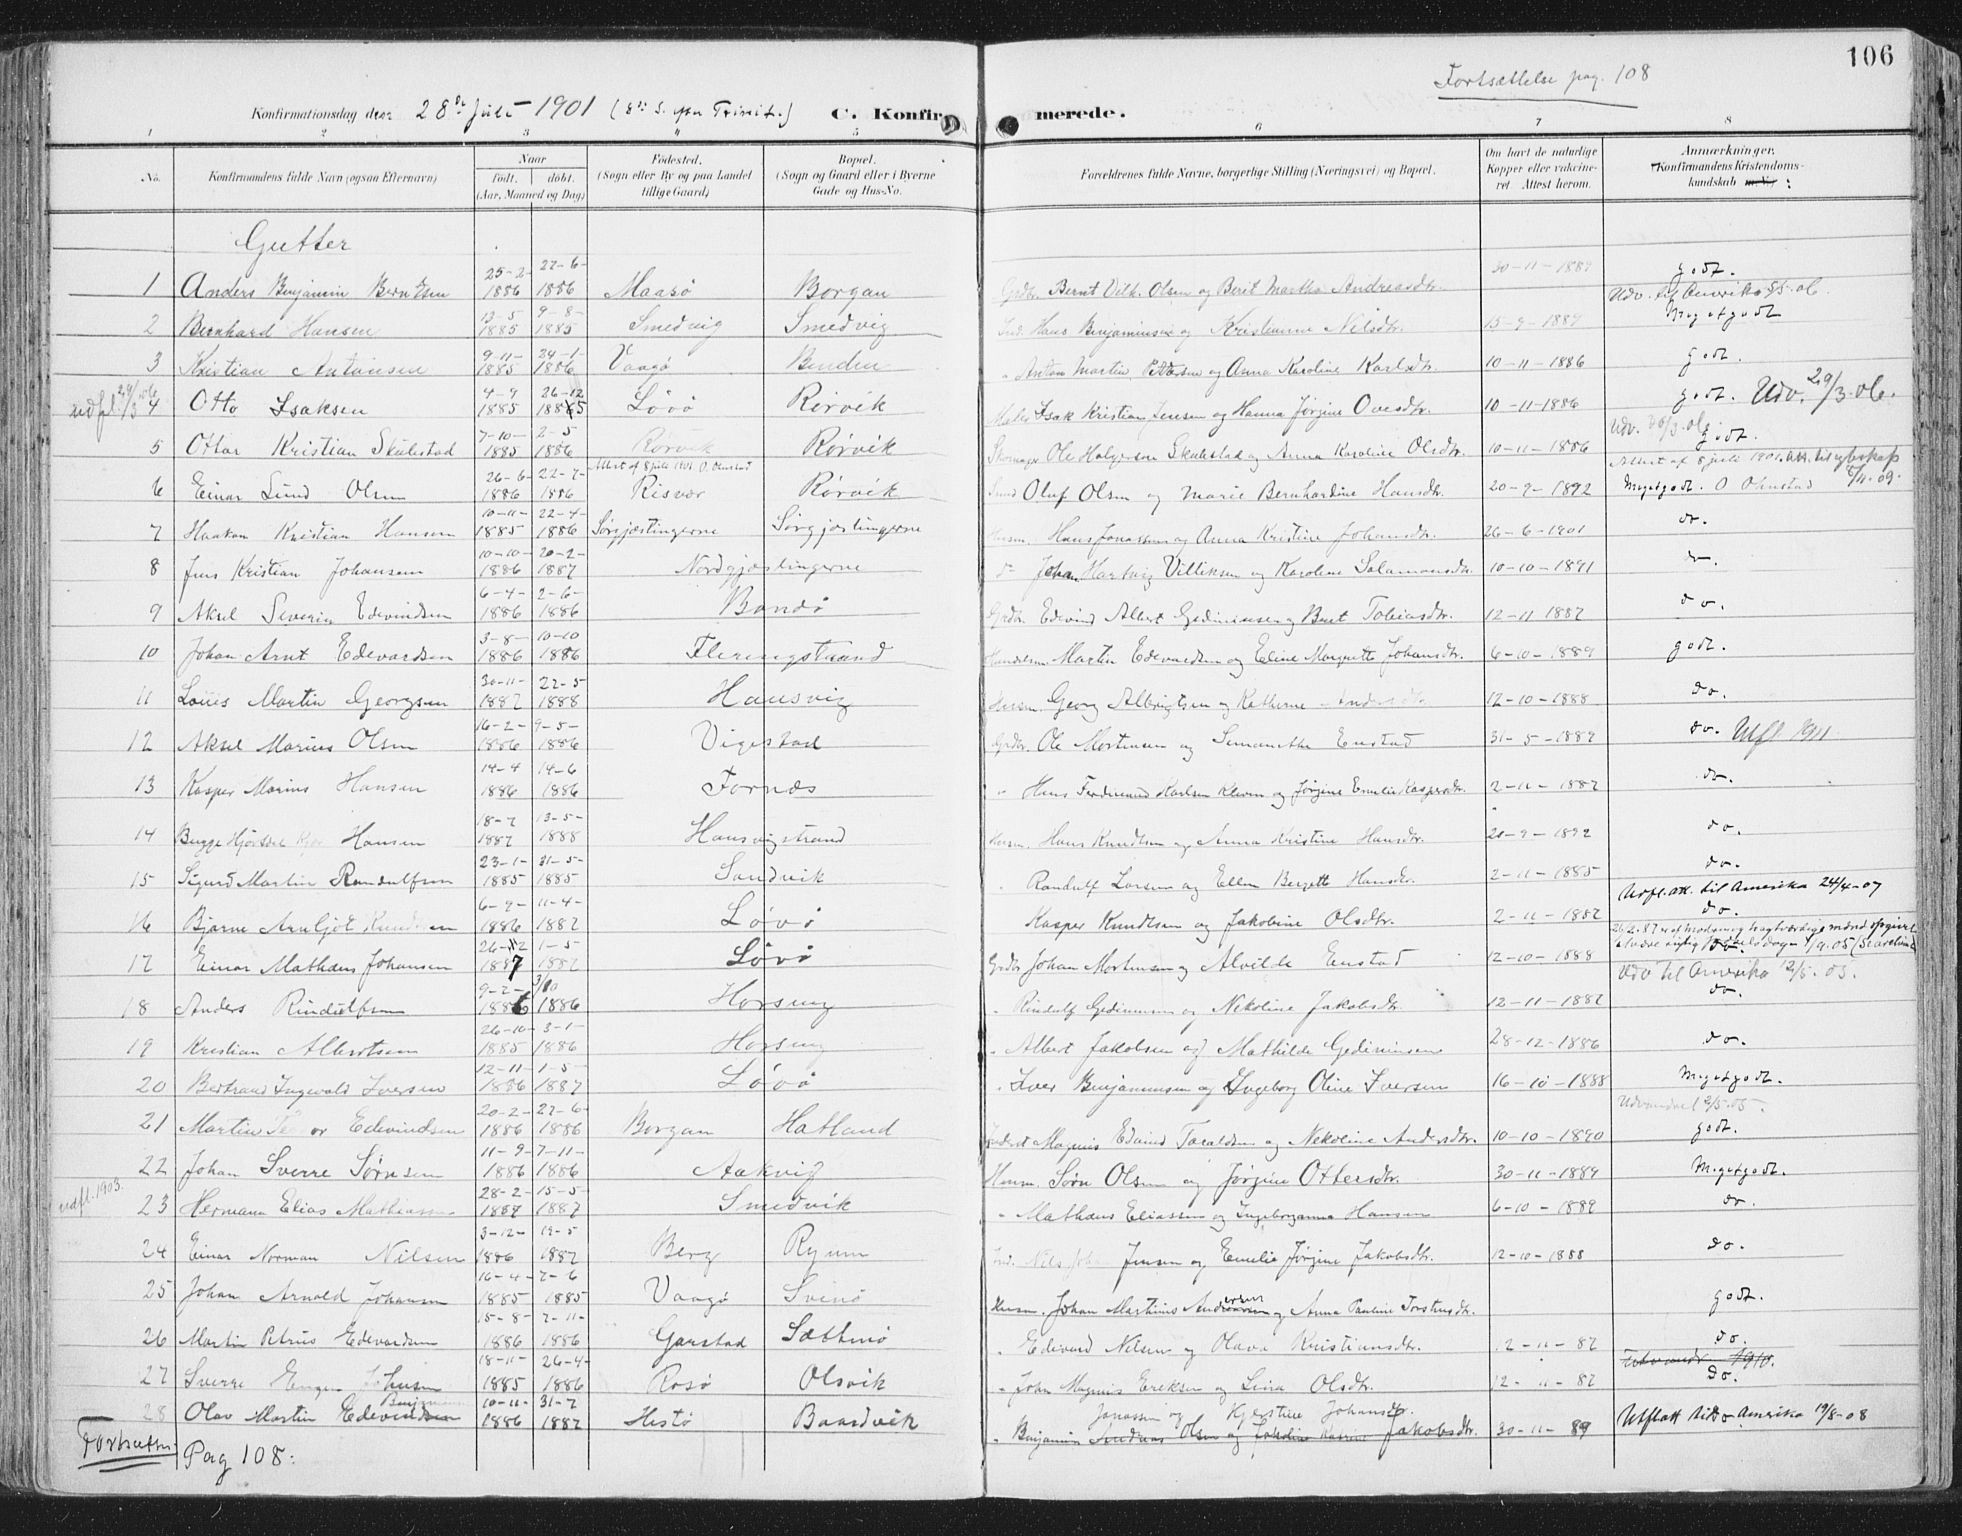 106
Fortsættelse pag. 108
Konfirmationsdag den 28de Juli 1901 (8de S. efter Trinit.) C. Konfirmerede.
1 2 3 4 5 6 7 8
No. Konfirmandens fulde Navn (ogsaa Efternavn) Naar født. døbt. (Aar, Maaned og Dag) Fødested. (Sogn eller By og paa Landet tillige Gaard) Bopæl. (Sogn og Gaard eller i Byerne Gade og Hus-No. Forældrenes fulde Navne, borgerlige Stilling (Næringsvei) og Bopæl. Om havt de naturlige Kopper eller vakcineret. Attest herom. Anmærkninger. Konfirmandens Kristendomskundskab m. V. :
Gutter
1 Anders Benjamin Berntsen 25-2-1886 22-6-1886 Maasø Borgan Grdbr. Bernt Vilh. Olsen og Berit Martha Andreasdtr. 30-11-1889 godt. Udv. til Amerika 5/5-06.
2 Bernhard Hansen 13-5-1885 9-8-1885 Smedvig Smedvig Ind. Hans Benjaminsen og Kristianne Nilsdtr. 15-9-1887 Megetgodt
3 Kristian Antonsen 9-11-1885 24-1-1886 Vaagø Anton Martin Pettersen og Anna Karoline Karlsdtr. 10-11-1886 godt.
udfl. 29/3 06 4 Otto Isaksen 4-9 1885 26-12 1885 Løvø Rørvik Isak Kristian Jensen og Hanna Jørgine Ovesdtr. 10-11-1886 godt. Udv. 29/3.06.
5 Ottar Kristian Skulestad 7-10-1885 2-5-1886 Rørvik Rørvik Skomager Ole Holgersen Skulestad og Anna Karoline Olsdtr. 10-11-1886 Udv. 20/3.06 godt.
6 Einar Lund Olsen 26-6-1886 22-7-1886 Attest af 8 juli 1901 O. Ohnstad Risvær Rørvik Oluf Olsen og Marie Bernhardine Hansdtr. 20-9-1892 Attest af 8 juli 1901. Megetgodt. O Ohnstad
7 Haakon Kristian Hansen 10-11-1885 22-4-1886 Sørgjæslingerne Sørgjæslingerne Husm. Hans Jonassen og Anna Kristine Johansdtr. 26-6-1901 do.
8 Jens Kristian Johansen 10-10-1886 20-2-1887 Nordgjæslingerne do Johan Hartvig Villiksen og Karoline Salamonsdtr. 10-10-1891 do.
9 Aksel Severin Edevindsen 6-4-1886 2-6-1886 Bondø Grdbr. Edevind Albert Gediminsen og Berit Tobiasdtr. 12-11 1887 do.
10 Johan Arnt Edevardsen 3-8-1886 10-10 1886 Fleringstrand Handelsm. Martin Edevardsen og Eline Margrette Johansdtr. 6-10-1889 godt.
11 Louis Martin Georgsen 30-11-1887 22-5 1888 Hansvig Husm. Georg Albrigtsen og Katherne Andersdtr. 12-10-1888 do.
12 Aksel Marius Olsen 16-2-1886 9-5-1886 Vigestad Grdbr. Ole Mortensen og Simanthe Enstad 31-5-1887 do. Utfl 1911
13 Kasper Marius Hansen 14-4 1886 14-6 1886 Fornæs Hans Ferdinand Karlsen Kleven og Jørgine Emelie Kaspersdtr. 2-11-1887 do.
14 Bugge Hjørtdal Hansen 18-7 1887 13-5-1888 Hansvigstrand Husm. Hans Knudtsen og Anna Kristine Hansdtr. 20-9-1892 do.
15 Sigurd Martin Randulfsen 23-1-1885 31-5-1885 Sandvik Randulf Larsen og Ellen Bergette Hansdtr. 2-11-1885 do. Utfl. att. til Amerika 24/4-07
16 Bjarne Arnljot Knudtsen 6-9-1886 11-4-1887 Løvø Kasper Knudtsen og Jakobine Olsdtr. 2-11-1887 do.
17 Einar Mathæus Johansen 26-2 1887 1-5-1887 Løvø Grdbr Johan Mortensen og Alvilde Enstad 12-10-1888 do.
18 Anders Rindulfsen 9-2-1886 3/10 1886 Horseng Rindulf Gediminsen og Nekoline Jakobsdtr. 12-11-1887 Udv til Amerika 12/5.05. do.
19 Kristian Albertsen 26-10-1885 3-1-1886 Horseng Albert Jakobsen og Mathilde Gediminsen 28-12-1886 do.
20 Bertrand Ingevald Iversen 12-11-1886 1-5-1887 Løvø Iver Benjaminsen og Ingeborg Oline Iversen 16-10-1888 Megetgodt.
21 Martin Edevindsen 20-2-1886 27-6-1886 Borgan Hatland Inderst Magnus Edvind Toraldsen og Nekoline Andersdtr. 10-10-1890 Udvandret 12/5.05. godt.
22 Johan Sverre Sørnsen 11-9-1886 7-11-1886 Aakvig Husm. Sørn Olsen og Jørgine Ottersdtr. 30-11-1889 Megetgodt.
udfl. 1903. 23 Hermann Elias Mathiassen 28-2-1887 15-5-1887 Smedvik Mathæus Eliassen og Ingeborganna Hansen 6-10-1889 do.
24 Einar Norman Nilsen 3-12-1886 19-5 1887 Berg Ryum Ind. Nils Johan Jensen og Emelie Jørgine Jakobsdtr. 12-10-1888 do.
25 Johan Arnold Johansen 16-4-1885 7-6 1885 Vaagø Svinø Husm. Johan Martinus Andersen og Anna Pauline Torstensdtr. godt.
26 Martin Petrus Edevardsen 15-8-1886 7-11-1886 Garstad Sættenø Edevard Nilsen og Olava Kristiansdtr. 12-11-87 do.
27 Sverre Eugen Johnsen 18-11-1885 26-4-1886 Rosø Olsvik John Magnus Eriksen og Lina Olsdtr. 12-11-87 Udvandr 1910. do.
28 Olav Martin Edevindsen Benjaminsen 10-11-1886 31-7 1887 Hestø Baardvik Benjamin Andreas Olsen og Jakobine Katrine Jakobsdtr. Jonassen og Kjerstine Johansdtr. 30-11-89 Utflatt til Amerika 19/8-08
Fortsættes Pag 108: